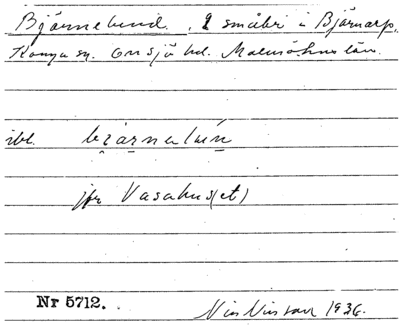 Bjärnelund, 2 småbr i Bjärnarp,
Konga sn. Onsjö hd. Malmöhus län.
ibl.
jfr Vasahus(et)
Nr 5712.
1936.